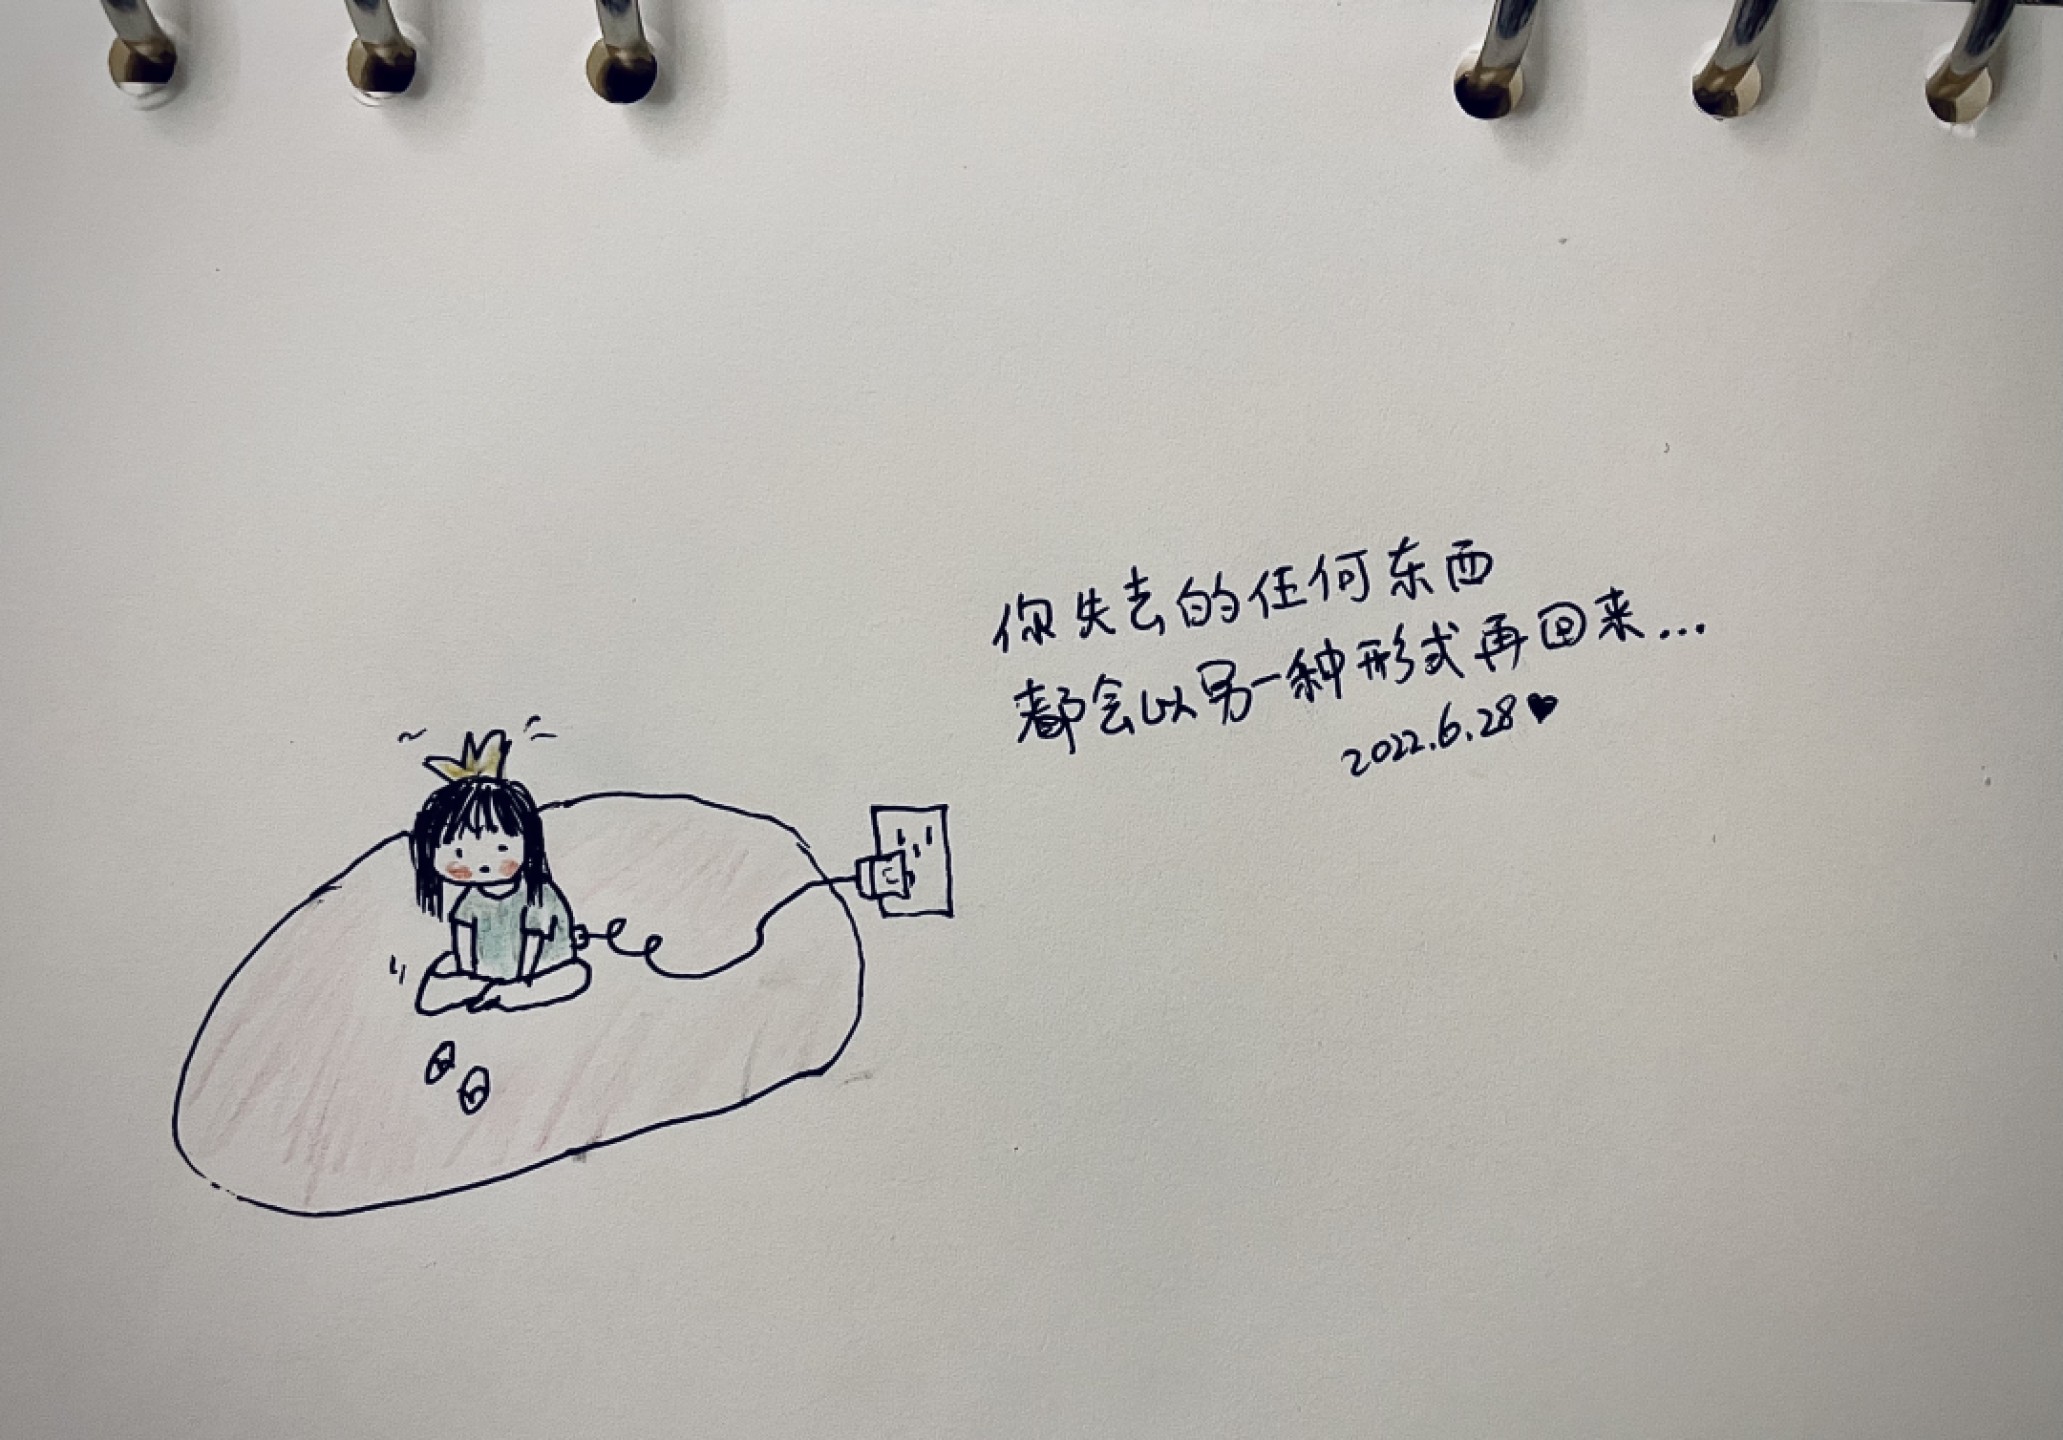 你失去的任何东西
都会以另一种形式再回来...
2022.6.28♥